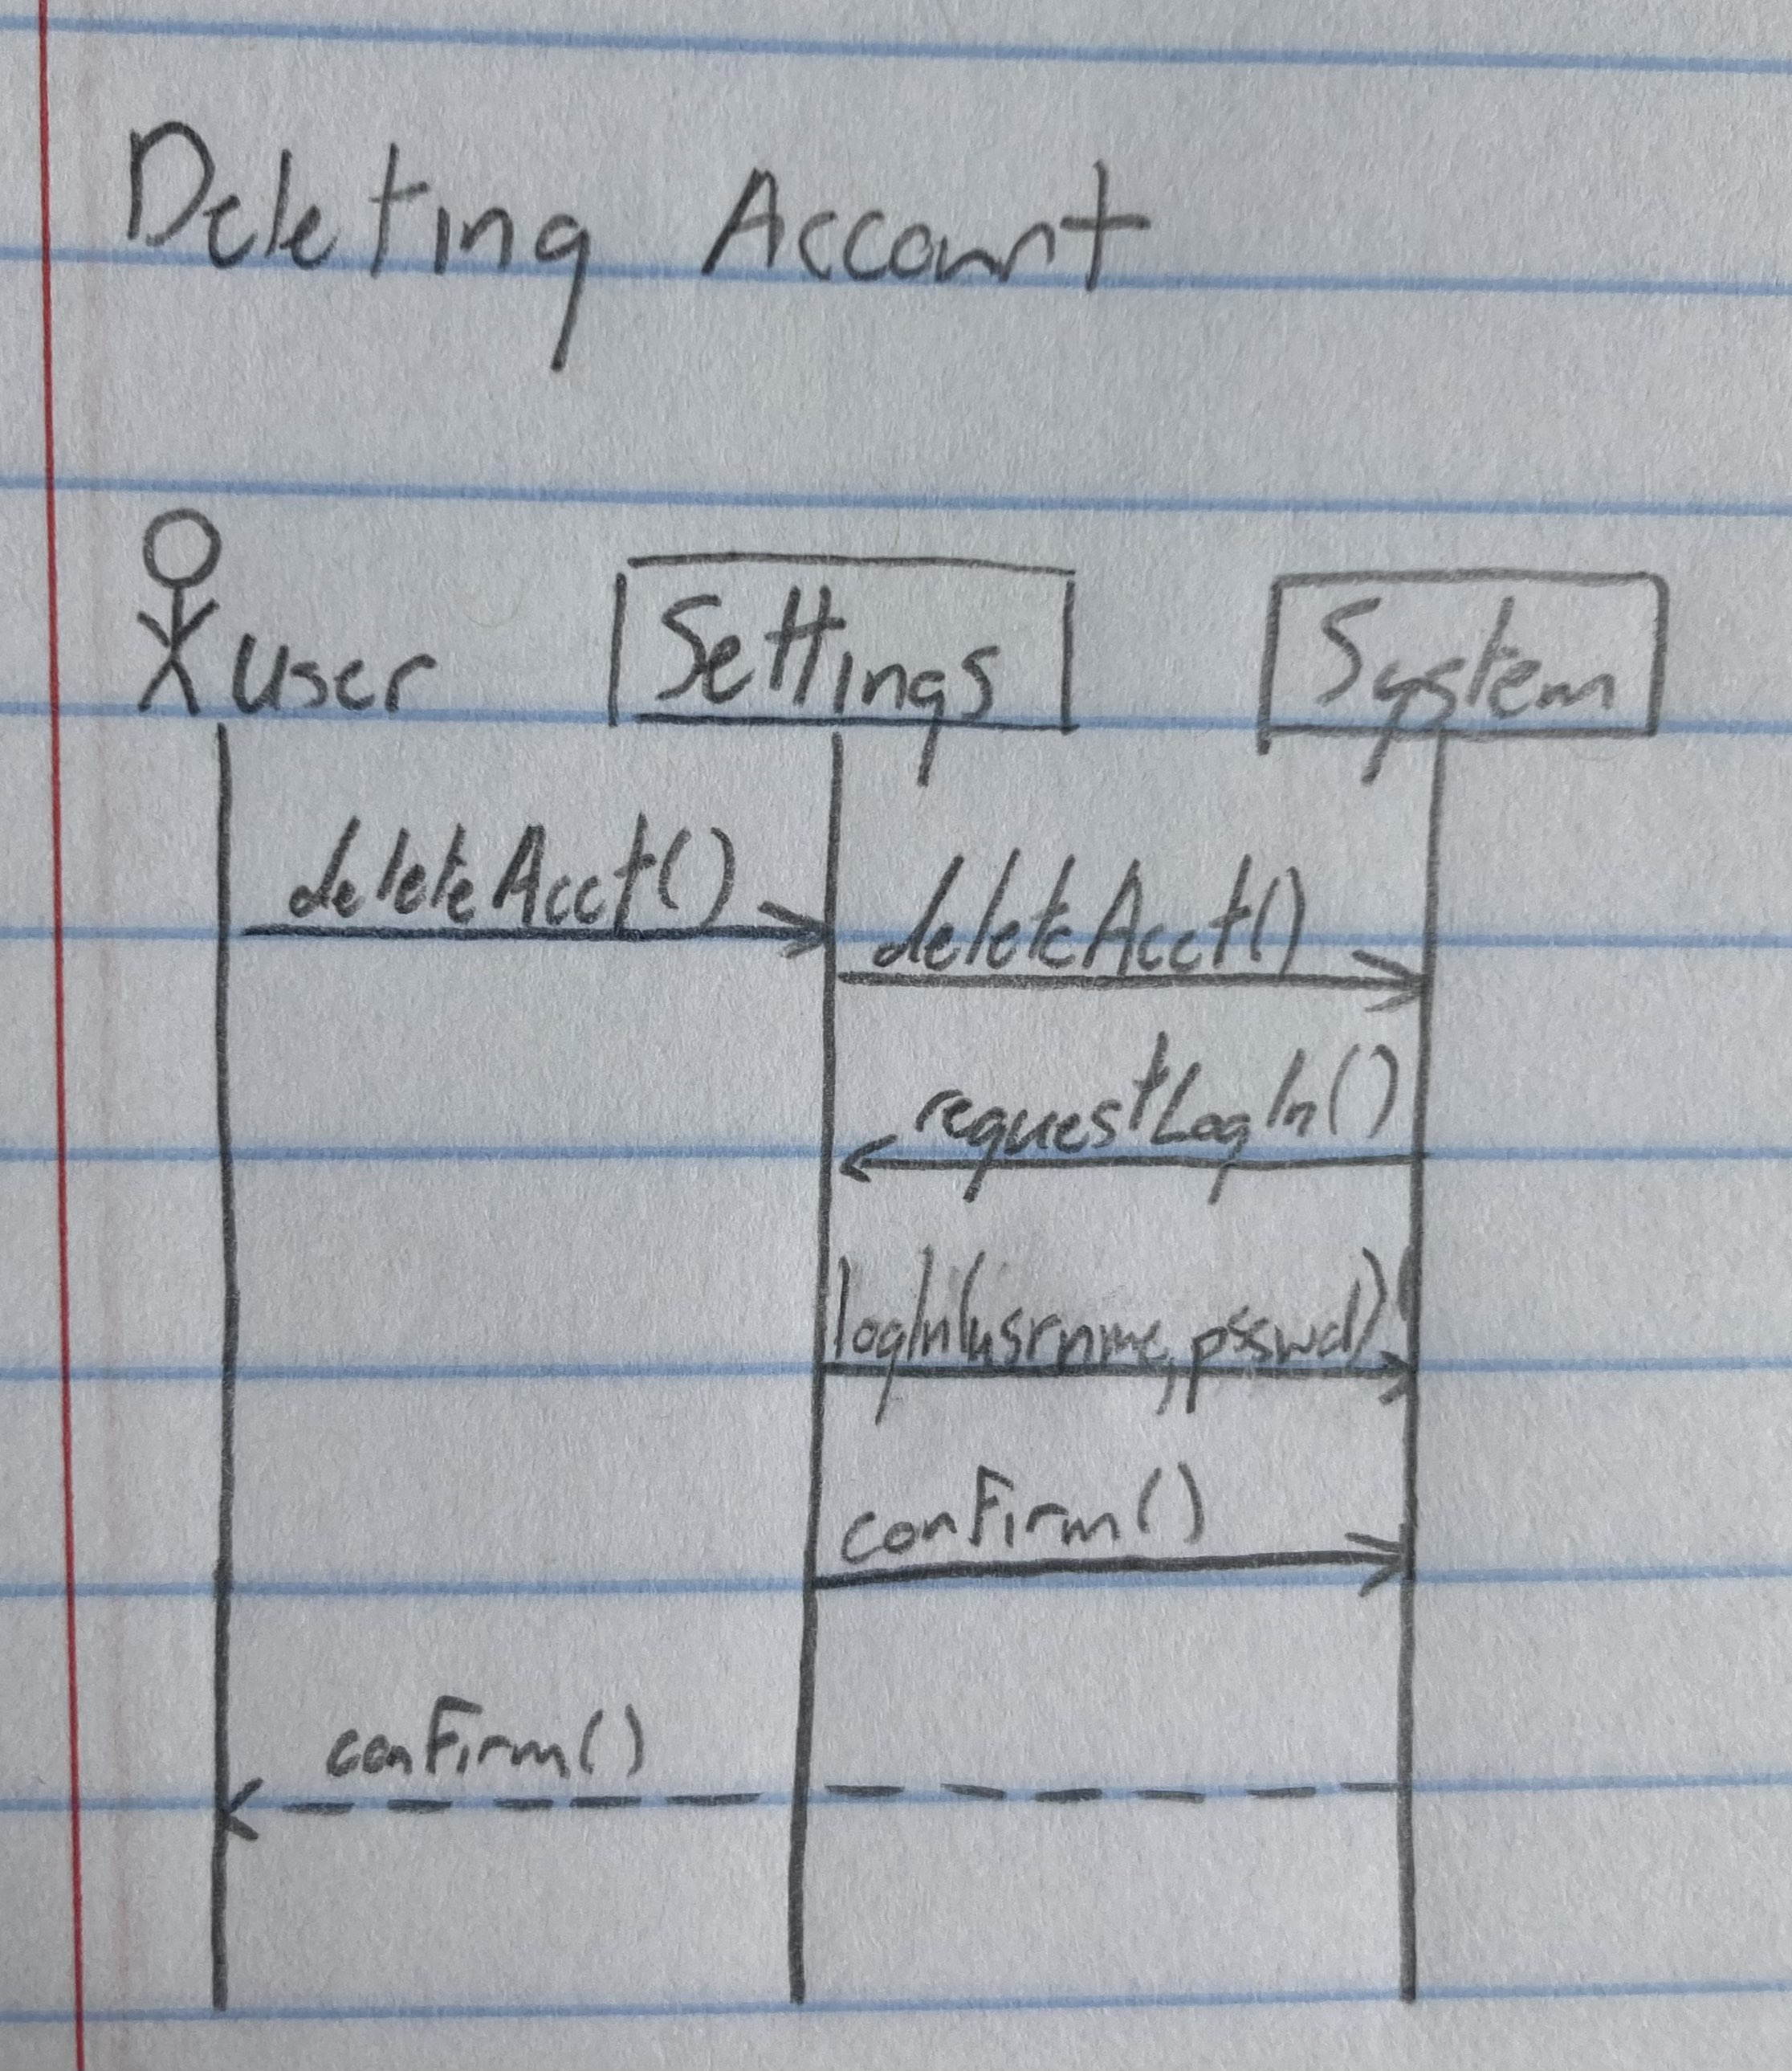 Deleting Account
user Settings System
deleteAcct()
deleteAcct()
requestLogIn()
logIn(usrnme, psswd)
confirm()
confirm()